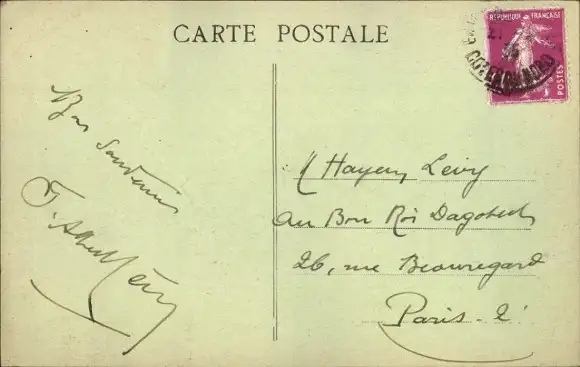 CARTE POSTALE
REPUBLIQUE FRANÇAISE
POSTES
Bon Souvenir
M Hayem Levy
Au Bon Roi Dagobert
26, rue Beauregard
Paris - 2